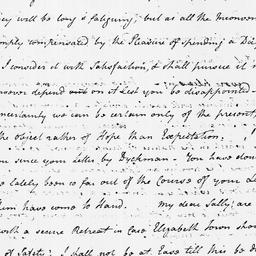 ney will be long & fatiguing; but as all the Inconven
mply compensated by the Pleasure of spending a Da
I consider it with Satisfaction, & shall pursue it
depend on it Lest you be disappointed—
ncertainty we can be certain only of the present,
the object rather of Hope than Expectation.
you since your Letter by Dyckman— You have don
so lately been so far out of the Course of your Le
them have come to Hand. My dear Sally; are
with a secure Retreat in Case Elizabeth Town shou
of Safety; I shall not be at Ease till this be d